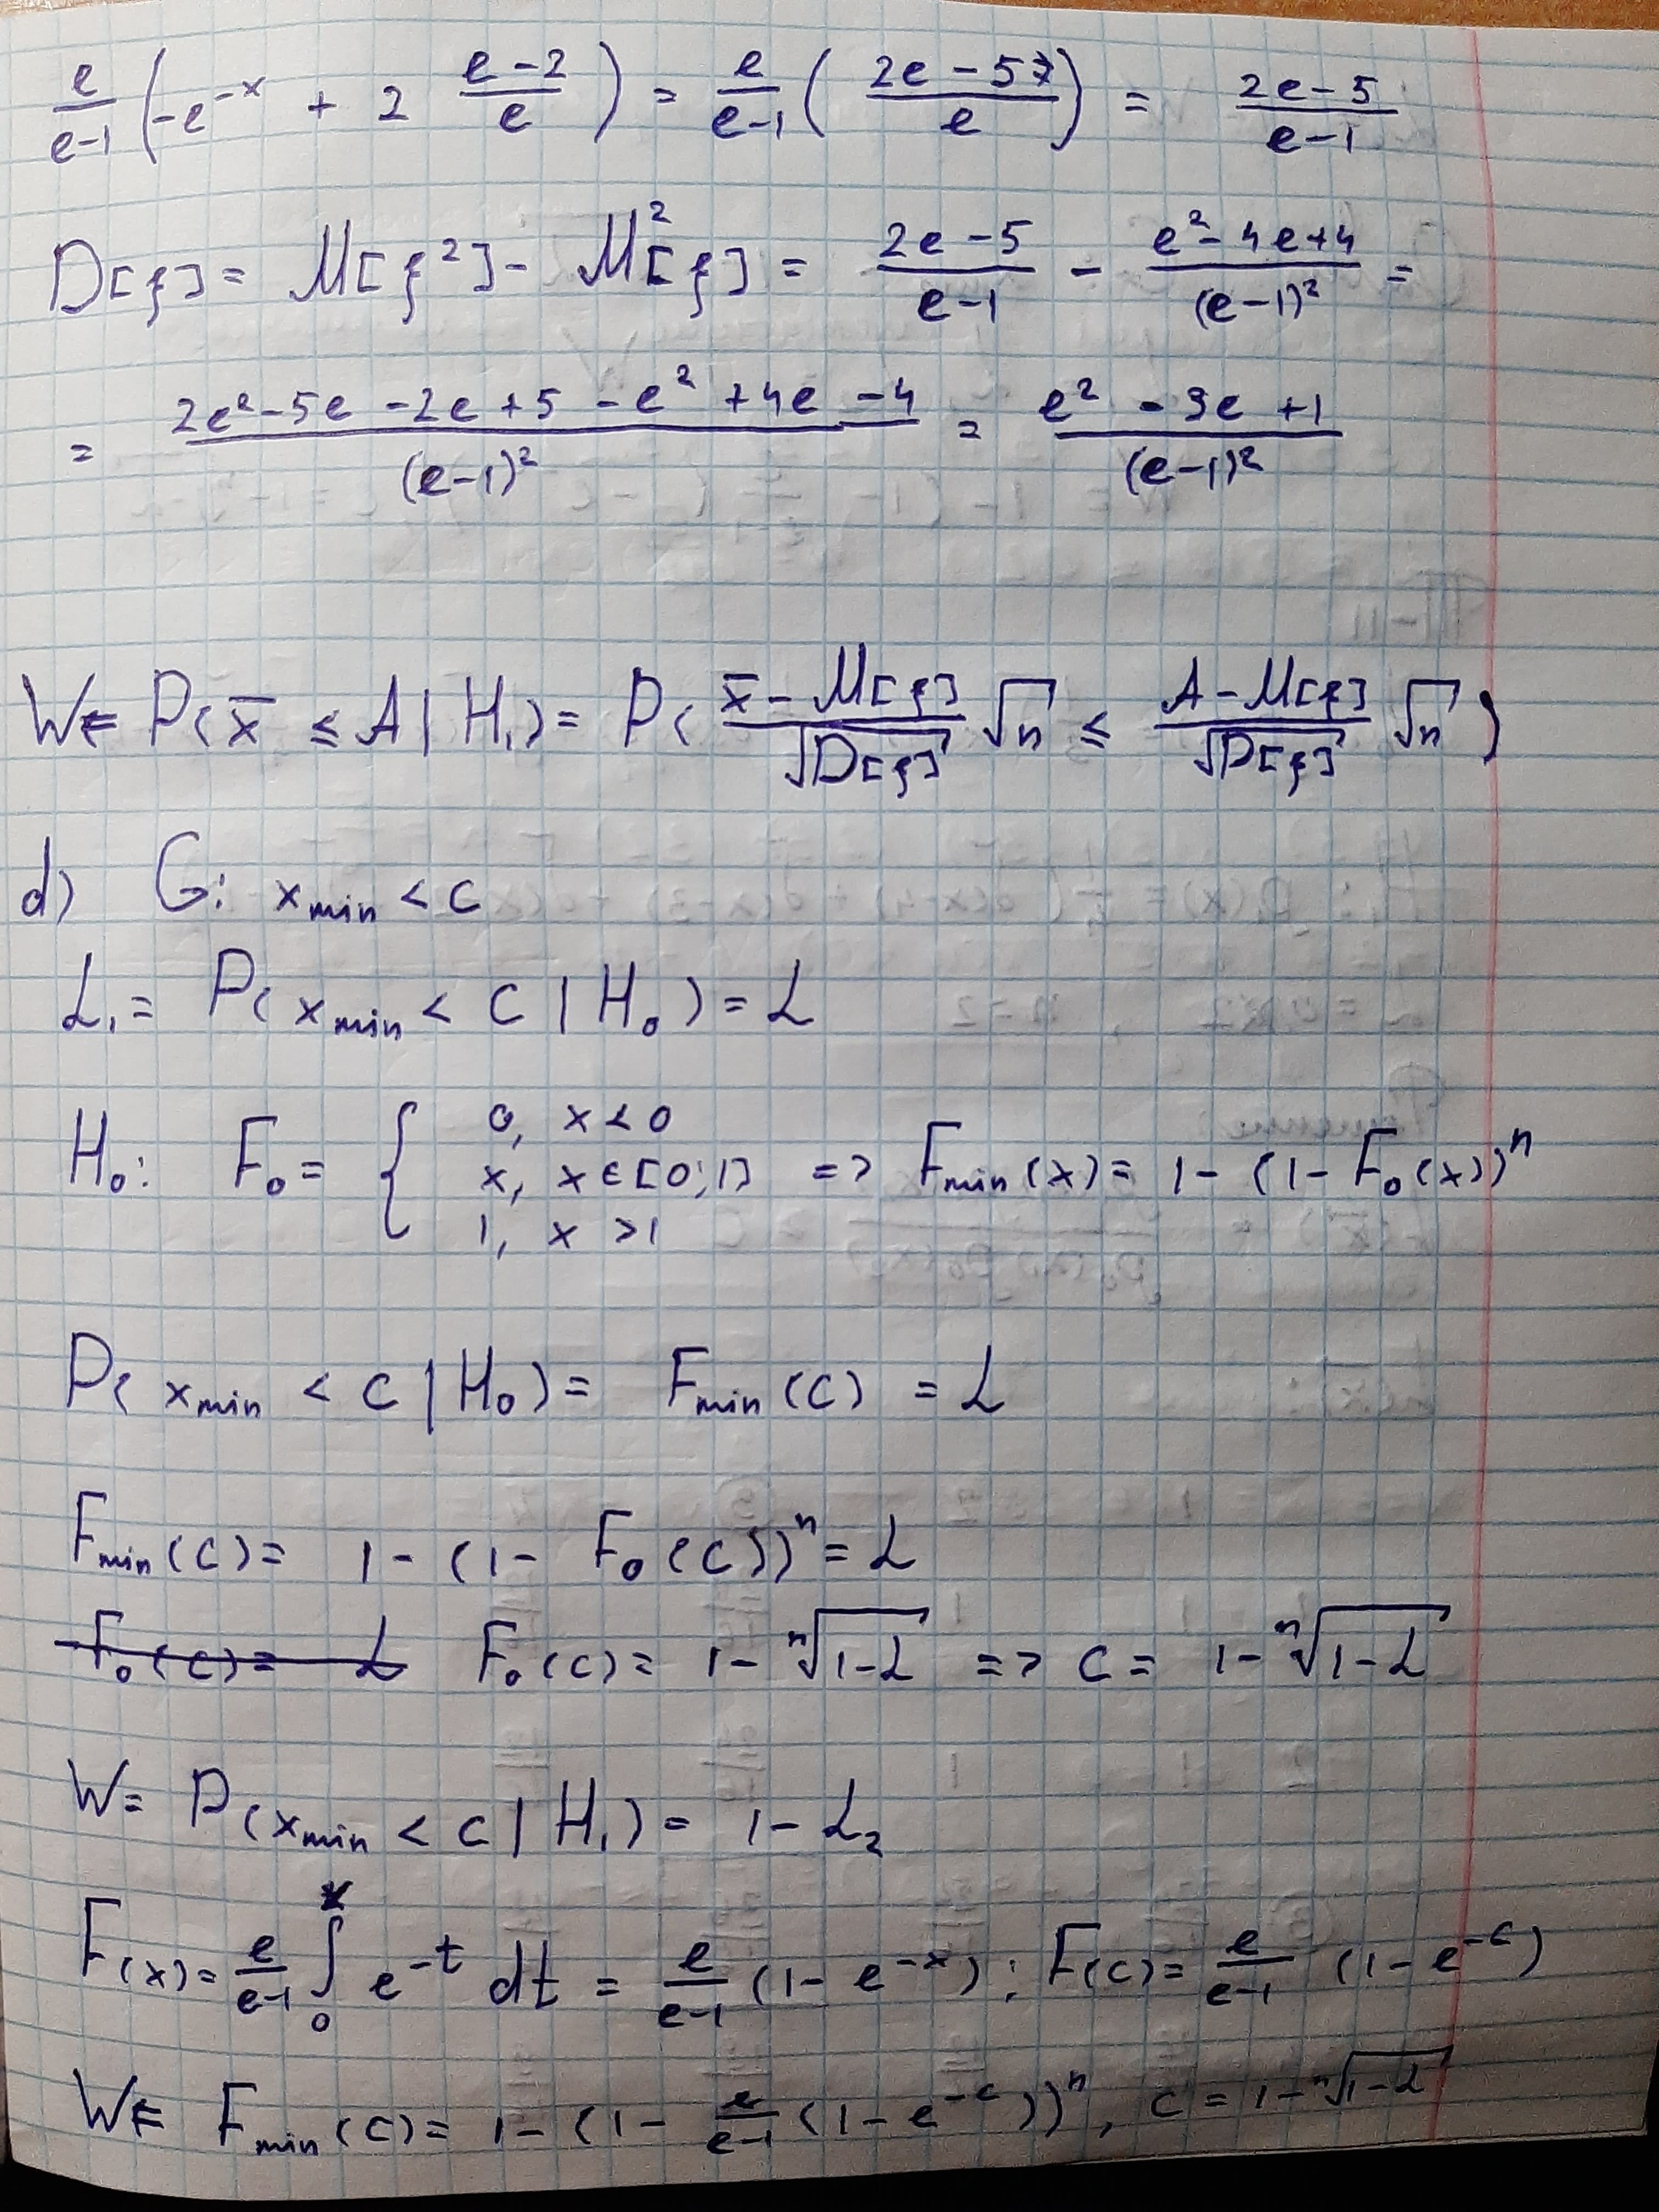 e/(e-1) (-e^{-x} + 2 (e-2)/e) = e/(e-1) ((2e-5)/e) = (2e-5)/(e-1)
D[ξ] = M[ξ²] - M²[ξ] = (2e-5)/(e-1) - (e²-4e+4)/(e-1)² =
= (2e²-5e-2e+5-e²+4e-4)/(e-1)² = (e²-3e+1)/(e-1)²
W = P(x̄ ≤ A | H₁) = P( (x̄ - M[ξ])/√D[ξ] √n ≤ (A - M[ξ])/√D[ξ] √n )
d) G: x_min < c
α₁ = P(x_min < c | H₀) = α
H₀: F₀ = { 0, x < 0; x, x ∈ [0;1]; 1, x > 1 => F_min(x) = 1-(1-F₀(x))ⁿ
P(x_min < c | H₀) = F_min(c) = α
F_min(c) = 1-(1-F₀(c))ⁿ = α
F₀(c) = α F₀(c) = 1-ⁿ√(1-α) => c = 1-ⁿ√(1-α)
W = P(x_min < c | H₁) = 1-α₂
F(x) = e/(e-1) ∫₀ˣ e^{-t} dt = e/(e-1) (1-e^{-x}); F(c) = e/(e-1) (1-e^{-c})
W = F_min(c) = 1-(1- e/(e-1) (1-e^{-c}))ⁿ, c = 1-ⁿ√(1-α)